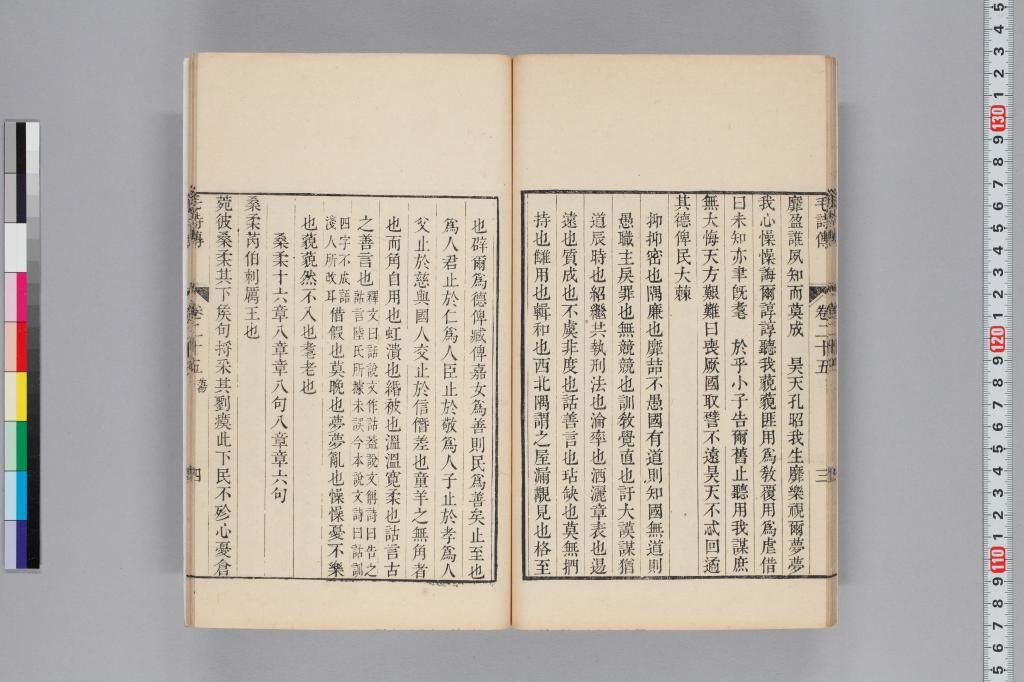 毛詩傳 卷二十五 三
靡盈誰夙知而莫成 昊天孔昭我生靡樂視爾夢夢
我心懆懆誨爾諄諄聽我藐藐匪用爲教覆用爲虐借
曰未知亦聿旣耄 於乎小子告爾舊止聽用我謀庶
無大悔天方艱難曰喪厥國取譬不遠昊天不忒回遹
其德俾民大棘
抑抑密也隅廉也靡喆不愚國有道則知國無道則
愚職主戾罪也無競競也訓敎覺直也訏大謨謀猶
道辰時也紹繼共執刑法也淪率也洒灑章表也逷
遠也質成也不虞非度也話善言也玷缺也莫無捫
持也讎用也輯和也西北隅謂之屋漏覯見也格至
也辟爾爲德俾臧俾嘉女爲善則民爲善矣止至也
爲人君止於仁爲人臣止於敬爲人子止於孝爲人
父止於慈與國人交止於信僭差也童羊之無角者
也而角自用也虹潰也緡被也溫溫寬柔也詁言古
之善言也 釋文曰詁說文作詁葢說文稱詩曰告之
詁言陸氏所據未誤今本說文詩曰詁訓
四字不成語
淺人所改耳 借假也莫晚也夢夢亂也懆懆憂不樂
也藐藐然不入也耄老也
桑柔十六章八章章八句八章章六句
桑柔芮伯刺厲王也
菀彼桑柔其下矦旬捋采其劉瘼此下民不殄心憂倉
毛詩傳 卷二十五 蕩 四
5
4
3
2
1
130
9
8
7
6
5
4
3
2
1
120
9
8
7
6
5
4
3
2
1
110
9
8
7
6
5